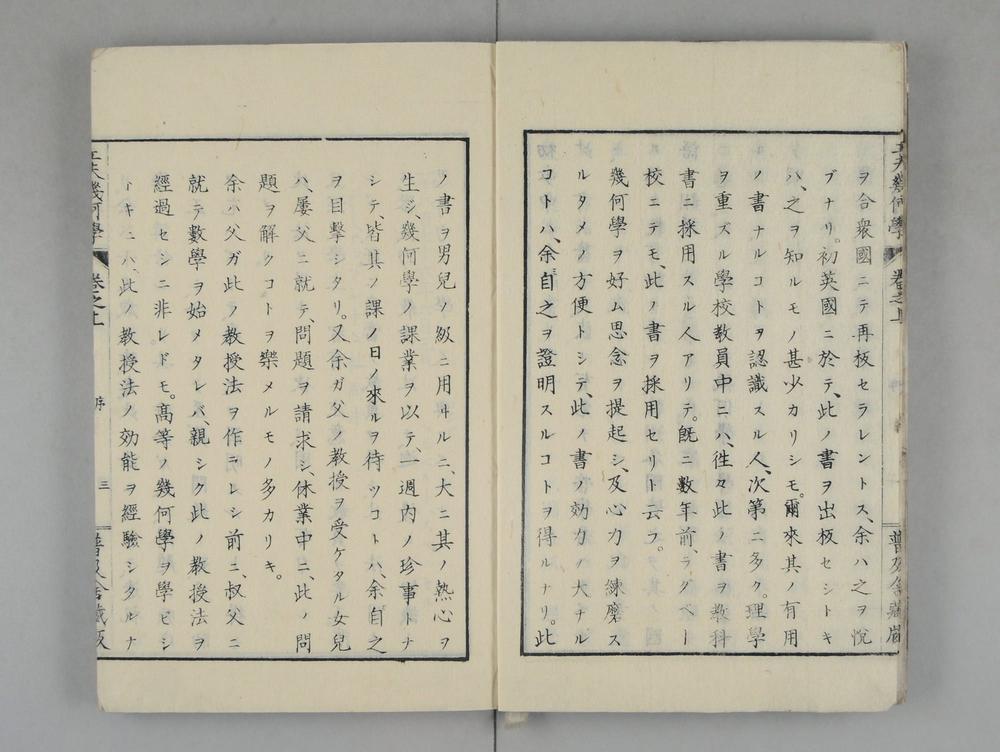 ヲ合衆國ニテ再板セラレントス、余ハ之ヲ悅
ブナリ。初英國ニ於テ、此ノ書ヲ出板セシトキ
ハ、之ヲ知ルモノ甚少カリシモ。爾來其ノ有用
ノ書ナルコトヲ認識スル人、次第ニ多ク。理學
ヲ重ズル學校教員中ニハ、徃々此ノ書ヲ教科
書ニ採用スル人アリテ。既ニ數年前、ラグベー
校ニテモ、此ノ書ヲ採用セリト云フ。
幾何學ヲ好ム思念ヲ提起シ、及心力ヲ練磨ス
ルタメノ方便トシテ、此ノ書ノ効力ノ大ナル
コトハ、余自之ヲ證明スルコトヲ得ルナリ。此
ノ書ヲ男兒ノ級ニ用ヰルニ、大ニ其ノ熱心ヲ
生シ、幾何學ノ課業ヲ以テ、一週内ノ珍事トナ
シテ、皆其ノ課ノ日ノ來ルヲ待ツコトハ、余自之
ヲ目擊シタリ。又余ガ父ノ教授ヲ受ケタル女兒
ハ、屢父ニ就テ、問題ヲ請求シ、休業中ニ、此ノ問
題ヲ解クコトヲ樂メルモノ多カリキ。
余ハ父ガ此ノ教授法ヲ作ラレシ前ニ、叔父ニ
就テ數學ヲ始メタレバ、親シク此ノ教授法ヲ
經過セシニ非レドモ。高等ノ幾何學ヲ學ビシ
トキニハ、此ノ教授法ノ効能ヲ經驗シタルナ
幾何學 卷之上
序
三
普及舍藏版